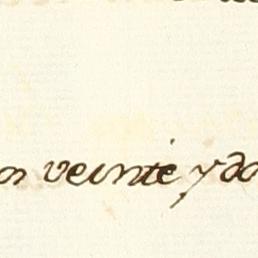 veinte y do